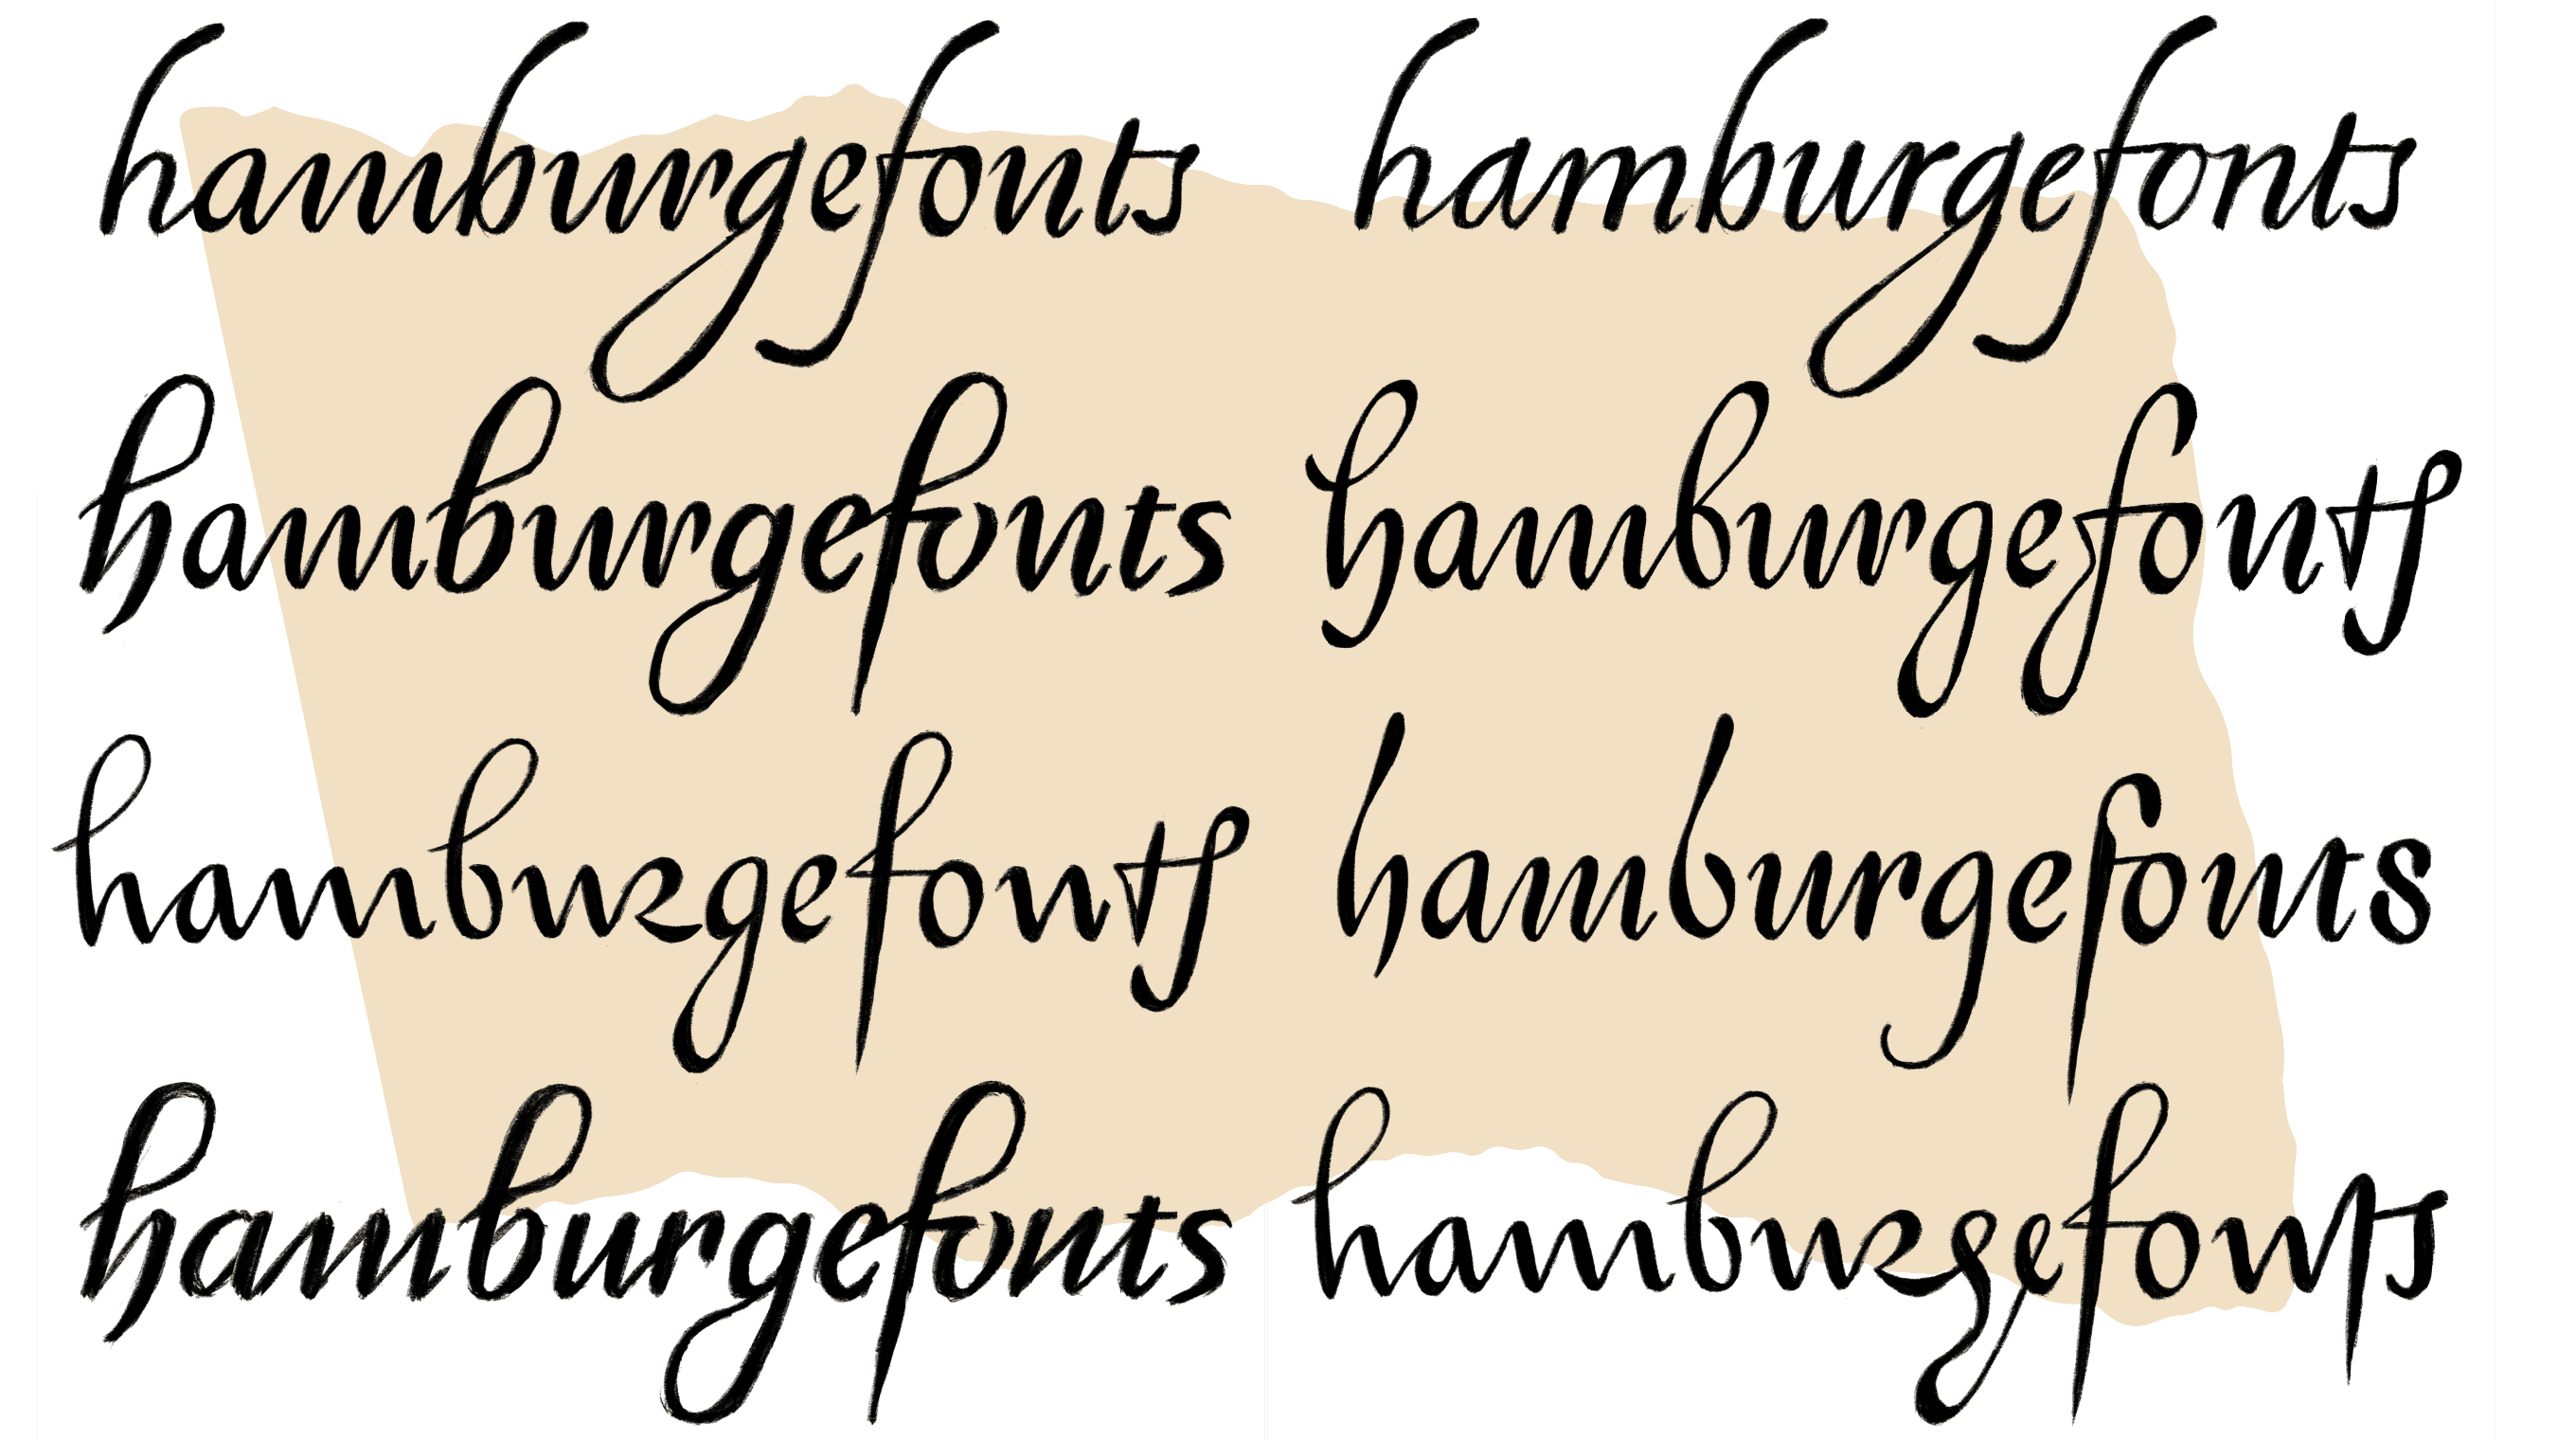 hamburgefonts hamburgefonts
hamburgefonts hamburgefonts
hamburgefonts hamburgefonts
hamburgefonts hamburgefonts